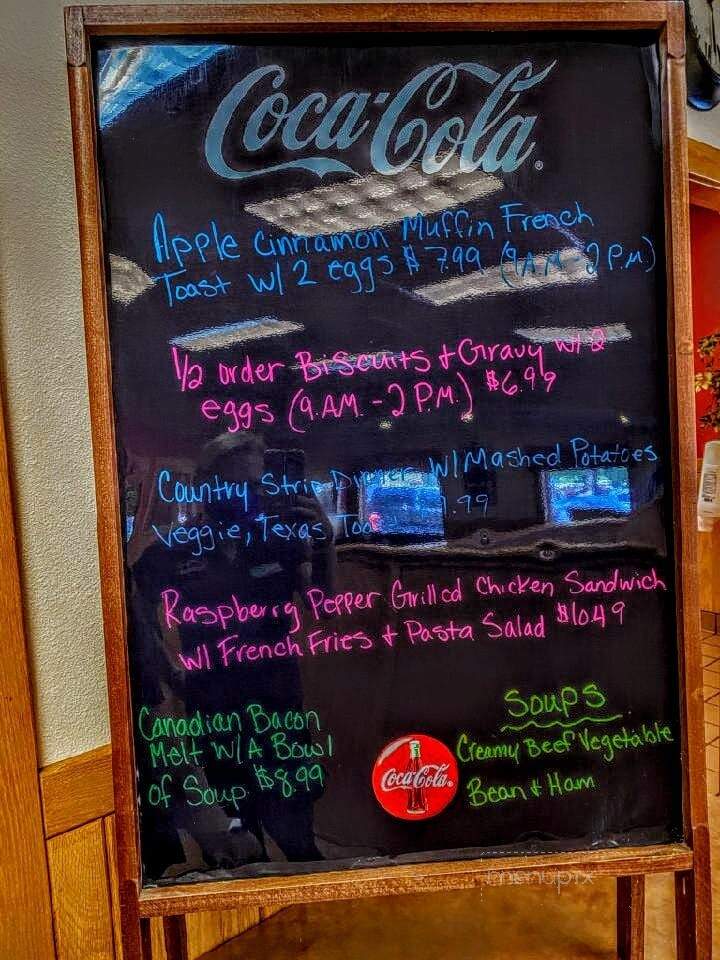 Coca-Cola
Apple Cinnamon Muffin French
Toast w/ 2 eggs $7.99 (9A.M-2P.M)
1/2 order Biscuits & Gravy w/ 2
eggs (9.AM.-2P.M.) $6.99
Country Strip Dinner W/Mashed Potatoes
Veggie, Texas .99
Raspberry Pepper Grilled Chicken Sandwich
w/ French Fries & Pasta Salad $10.49
Canadian Bacon
Melt W/A Bowl
of Soup $8.99
Soups
Creamy Beef Vegetable
Bean & Ham
Coca-Cola
menupix